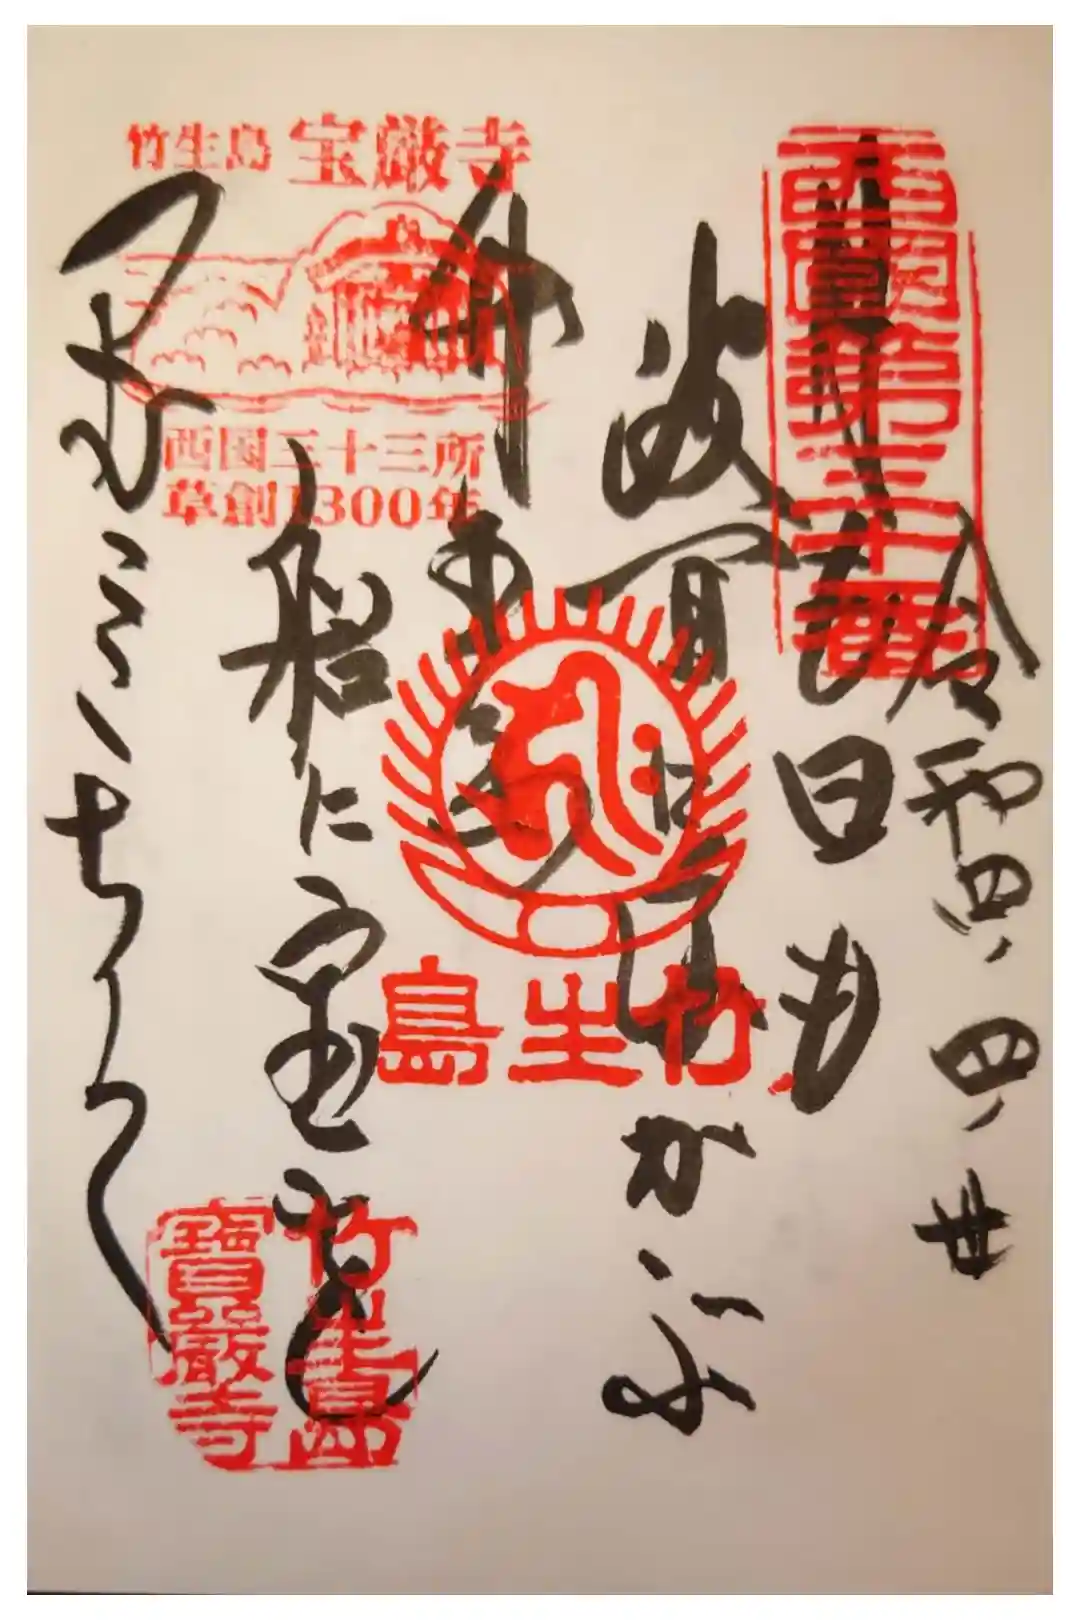 令和四、四、廿
西國第三十番
月も日も
波間に浮かぶ
竹生島
船に宝を
つむこゝちして
竹生島 宝厳寺
西国三十三所
草創1300年
竹生島
竹生島
寶嚴寺